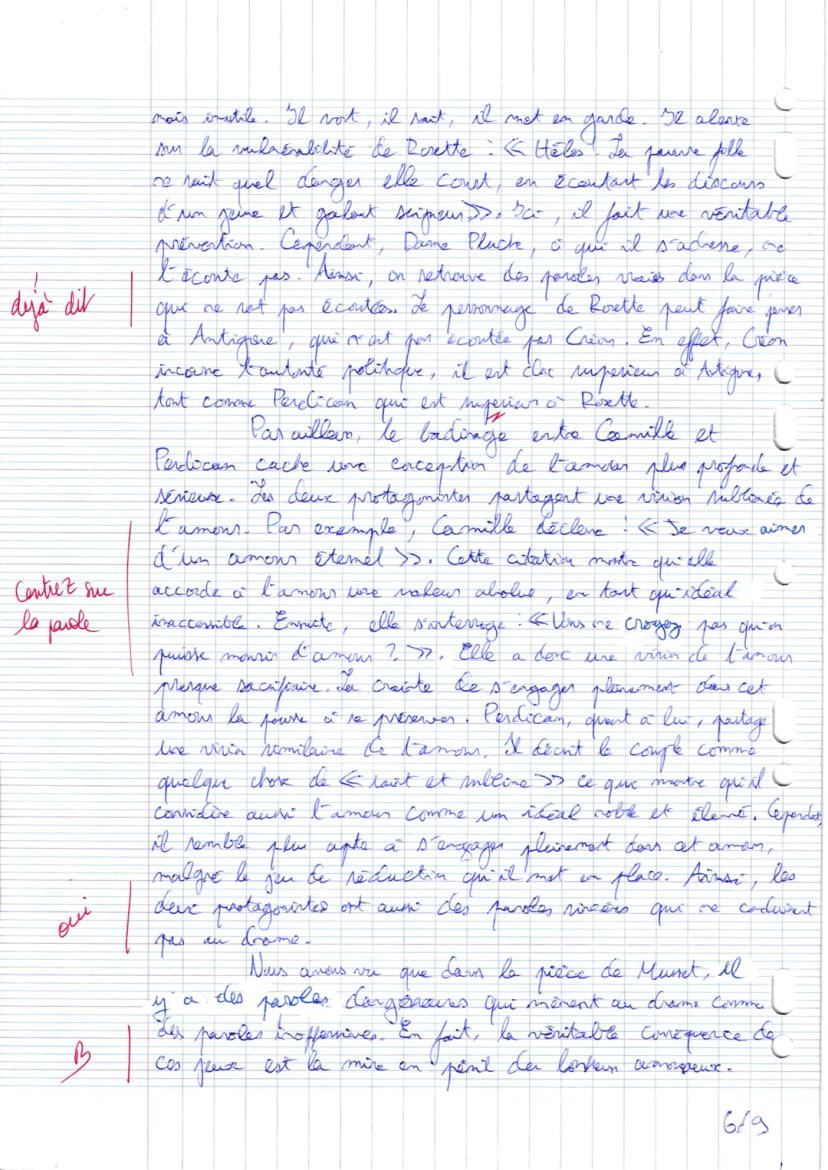 mais inutile. Il voit, il sait, il met en garde. Il alerte
sur la vulnérabilité de Rosette : « Hélas ! La pauvre fille
ne sait quel danger elle court, en écoutant les discours
d'un jeune et galant seigneur ». Ici, il fait une véritable
prévention. Cependant, Dame Pluche, à qui il s'adresse, ne
l'écoute pas. Ainsi, on retrouve des paroles vraies dans la pièce
déjà dit
qui ne sont pas écoutées. Le personnage de Rosette peut faire penser
à Antigone, qui n'est pas écoutée par Créon. En effet, Créon
incarne l'autorité politique, il est donc supérieur à Antigone,
tout comme Perdican qui est supérieur à Rosette.
Par ailleurs, le badinage entre Camille et
Perdican cache une conception de l'amour plus profonde et
sérieuse. Les deux protagonistes partagent une vision sublimée de
l'amour. Par exemple, Camille déclare : « Je veux aimer
d'un amour éternel ». Cette citation montre qu'elle
Centrez sur
la parole
accorde à l'amour une valeur absolue, en tant qu'idéal
inaccessible. Ensuite, elle s'interroge : « Vous ne croyez pas qu'on
puisse mourir d'amour ? ». Elle a donc une vision de l'amour
presque sacrificiaire. La crainte de s'engager pleinement dans cet
amour la pousse à se préserver. Perdican, quant à lui, partage
une vision similaire de l'amour. Il décrit le couple comme
quelque chose de « saint et sublime » ce que montre qu'il
considère aussi l'amour comme un idéal noble et élevé. Cependant,
il semble plus apte à s'engager pleinement dans cet amour,
malgré le jeu de séduction qu'il met en place. Ainsi, les
oui
deux protagonistes ont aussi des paroles sincères qui ne conduisent
pas au drame.
Nous avons vu que dans la pièce de Musset, il
y a des paroles dangereuses qui mènent au drame comme
des paroles inoffensives. En fait, la véritable conséquence de
B
ces jeux est la mise en péril du bonheur amoureux.
6/9